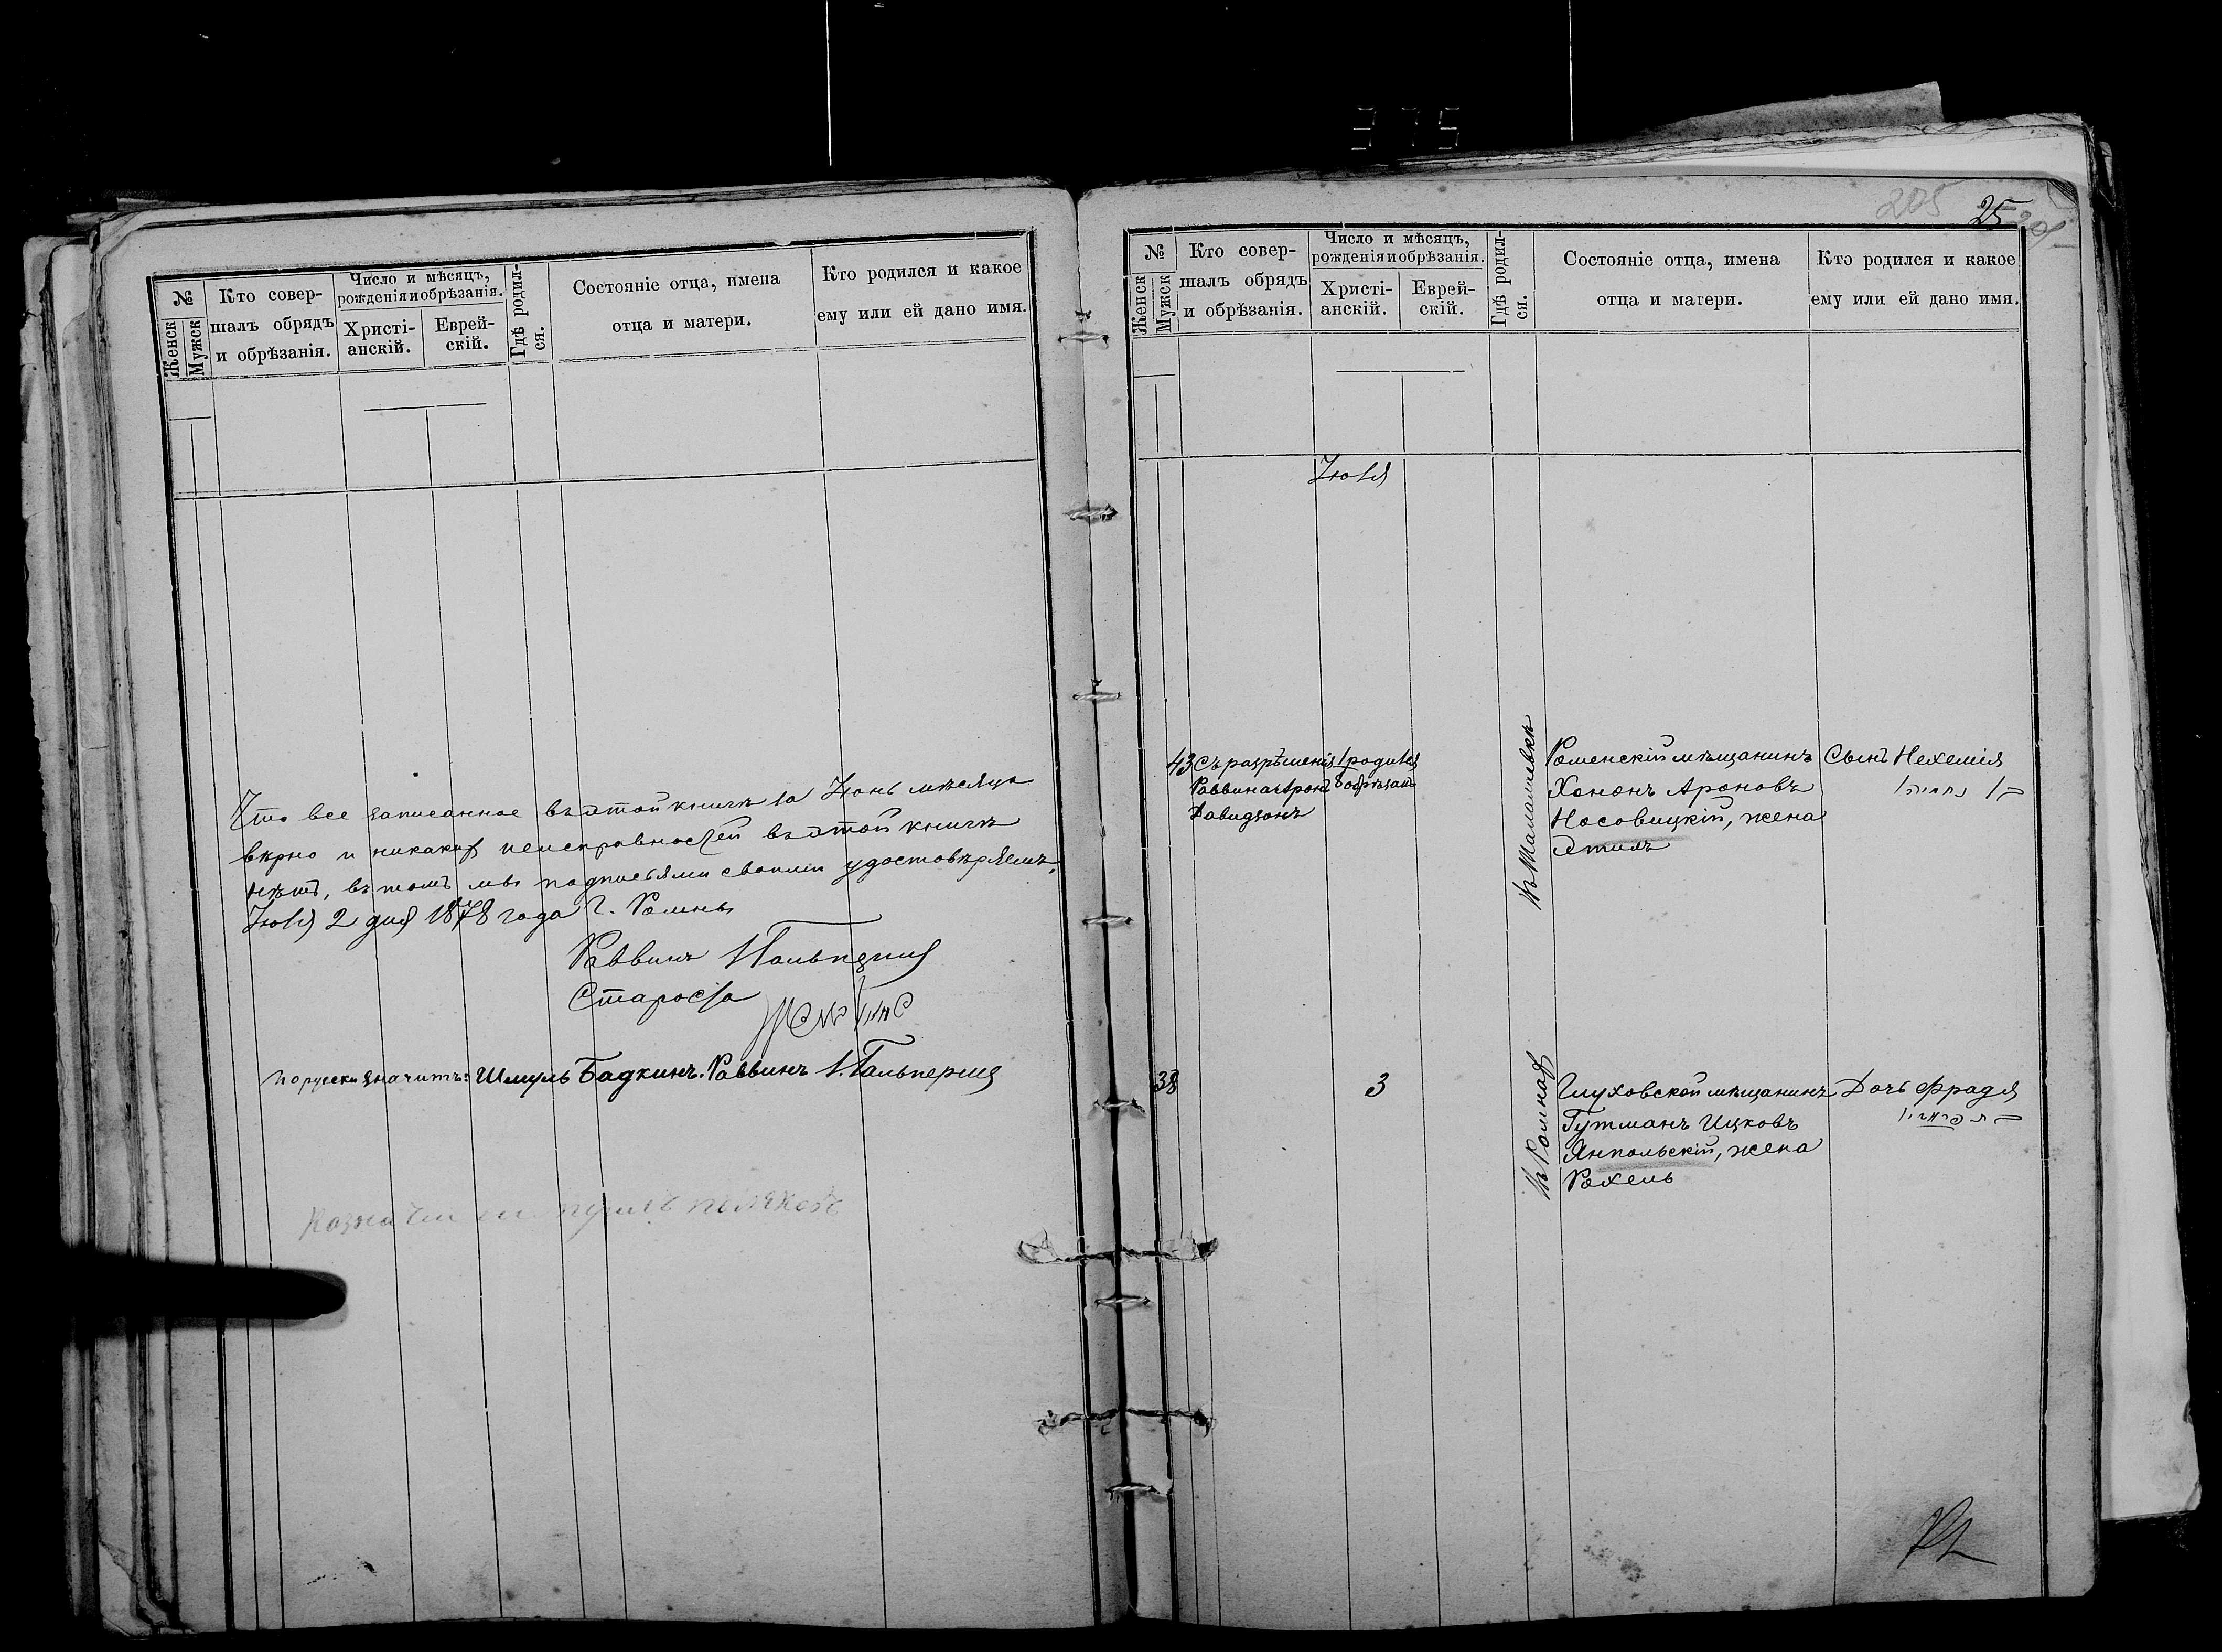 375
№
Женск
Мужск
Кто совер-
шалъ обрядъ
и обрѣзанія.
Число и мѣсяцъ,
рожденія и обрѣзанія.
Христі-
анскій.
Еврей-
скій.
Гдѣ родил-
ся.
Состояніе отца, имена
отца и матери.
Кто родился и какое
ему или ей дано имя.
Что все записанное въ этой книгѣ за Іюнь мѣсяцъ
вѣрно и никакихъ неисправностей въ этой книгѣ
нѣтъ, въ томъ мы подписьями своими удостовѣряемъ,
Іюля 2 дня 1878 года г. Ромны
Раввинъ Гальперинъ
Староста
по русски значитъ: Шмуль Бадкинъ. Раввинъ Гальперинъ
205
25
№
Женск
Мужск
Кто совер-
шалъ обрядъ
и обрѣзанія.
Число и мѣсяцъ,
рожденія и обрѣзанія.
Христі-
анскій.
Еврей-
скій.
Гдѣ родил-
ся.
Состояніе отца, имена
отца и матери.
Кто родился и какое
ему или ей дано имя.
Іюля
43 Съ разрѣшенія
Раввина Аронъ
Давидзонъ
1 родился
8 обрѣзанъ
Роменскій мѣщанинъ
Хононъ Ароновъ
Носовицкій, жена
Этиль
Сынъ Нехемія
38
3
въ Ромнах
Глуховской мѣщанинъ
Гутманъ Ицковъ
Янпольскій, жена
Рохель
Дочь Фрадя